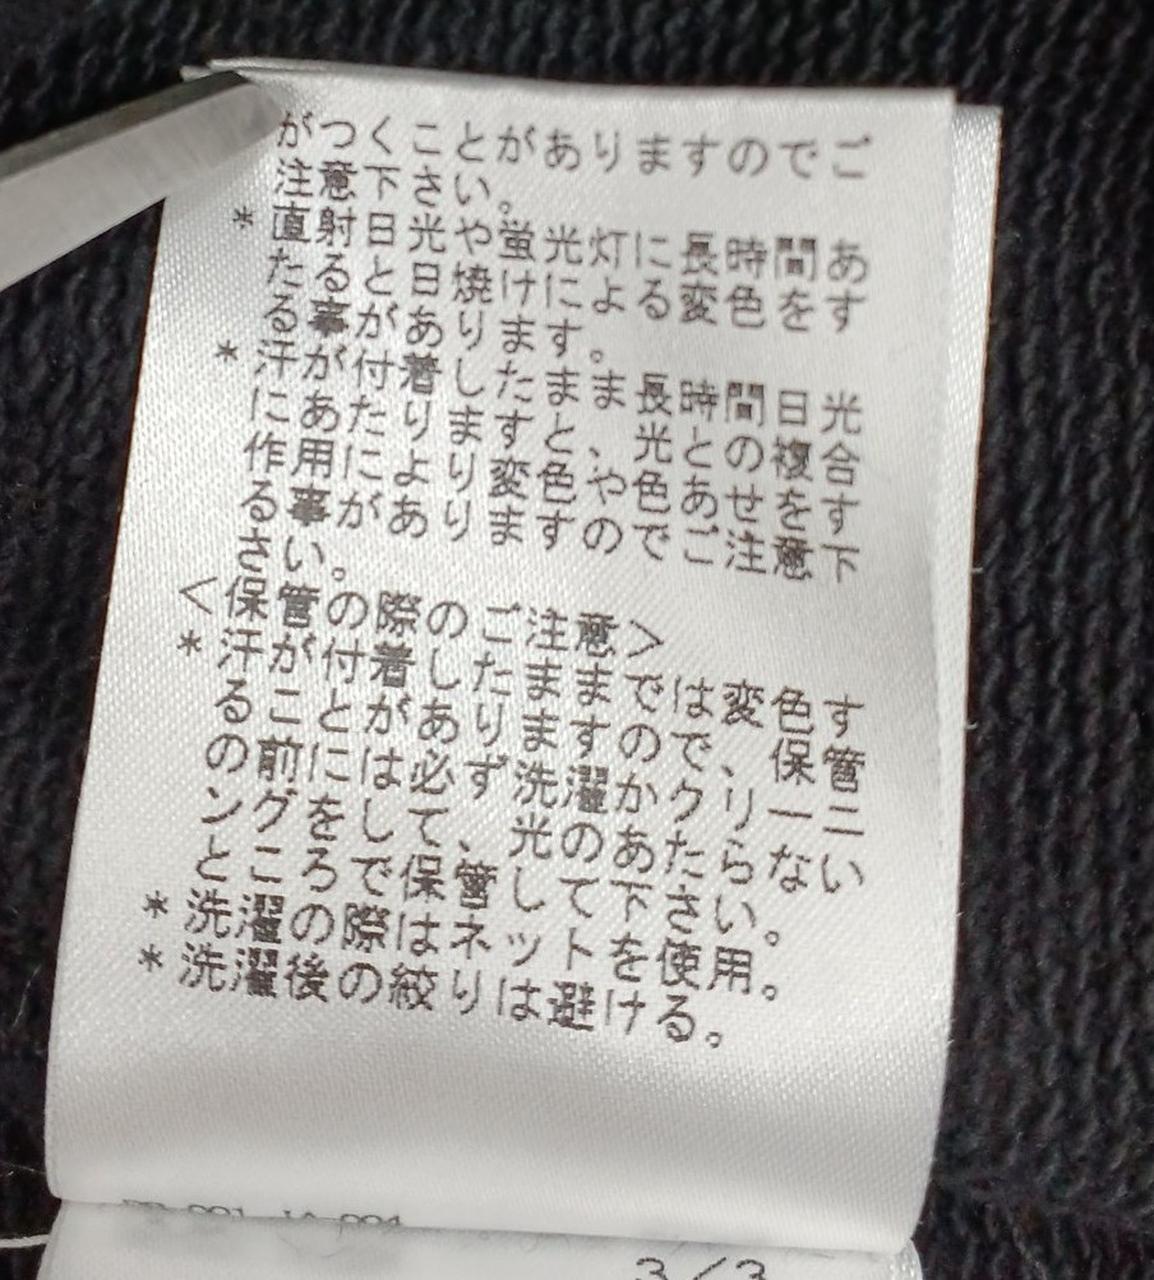 がつくことがありますのでご
注意下さい。
*直射日光や蛍光灯に長時間あ
たると日焼けによる変色をす
る事があります。
*汗が付着したまま長時間日光
にあたりますと、光との複合
作用により変色や色あせをす
る事がありますのでご注意下
さい。
<保管の際のご注意>
*汗が付着したままでは変色す
ることがありますので、保管
の前には必ず洗濯かクリーニ
ングをして、光のあたらない
ところで保管して下さい。
*洗濯の際はネットを使用。
*洗濯後の絞りは避ける。
3/3